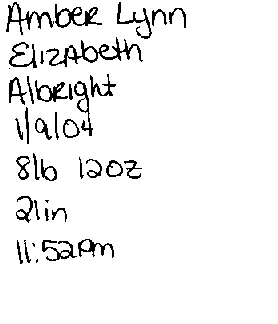 Amber Lynn
Elizabeth
Albright
1/9/04
8lb 12oz
21in
11:52pm